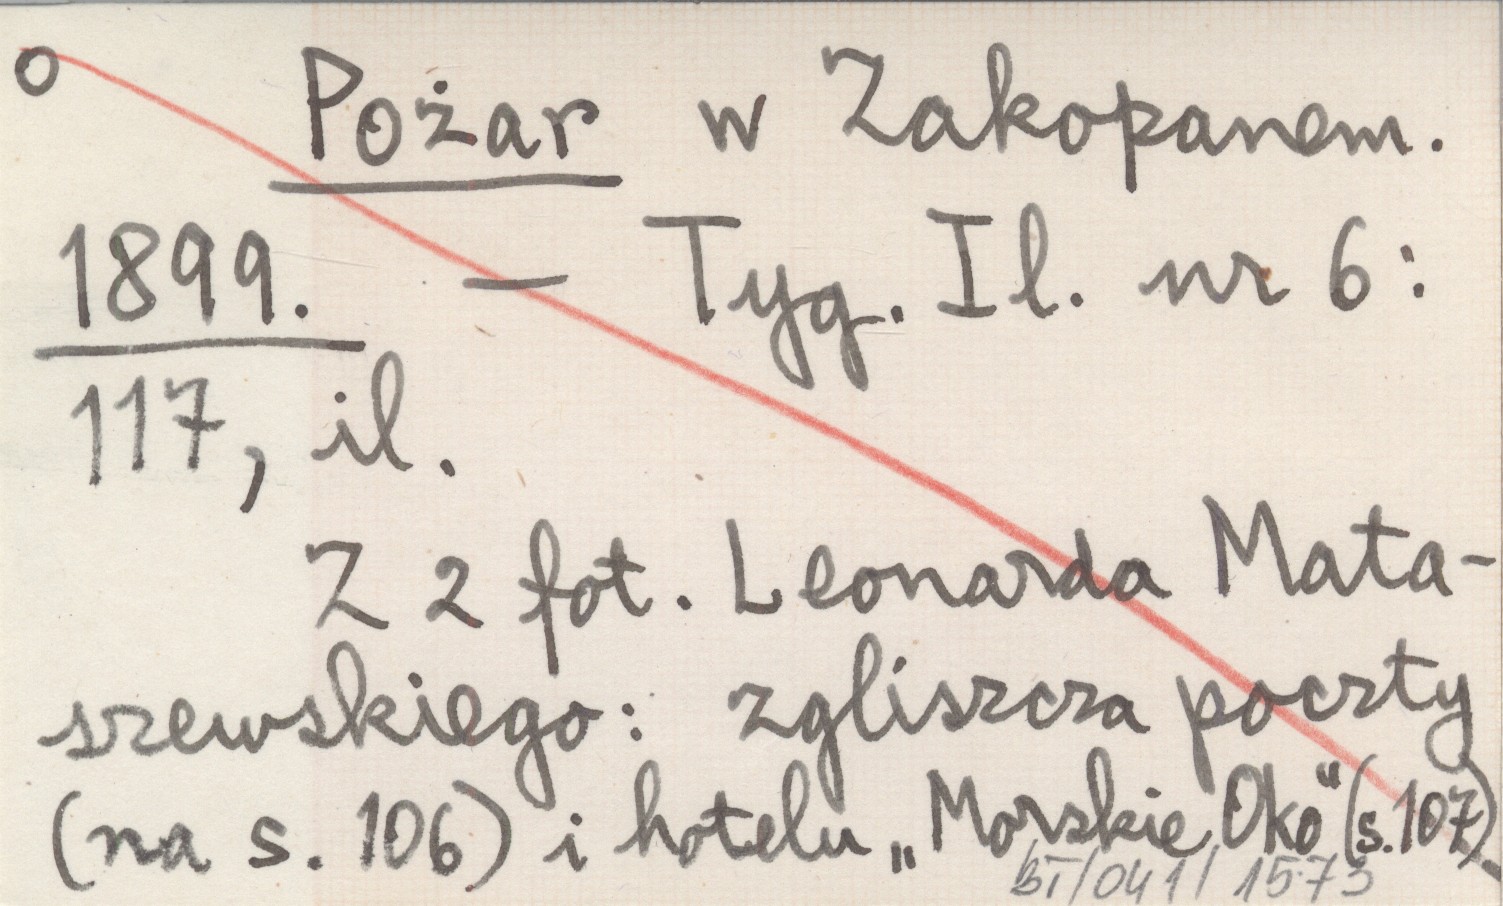 o Pożar w Zakopanem.
1899. — Tyg. Il. nr 6:
117, il.
Z 2 fot. Leonarda Mata-
szewskiego: zgliszcza poczty
(na s. 106) i hotelu „Morskie Oko" (s. 107)
BT/041/1573